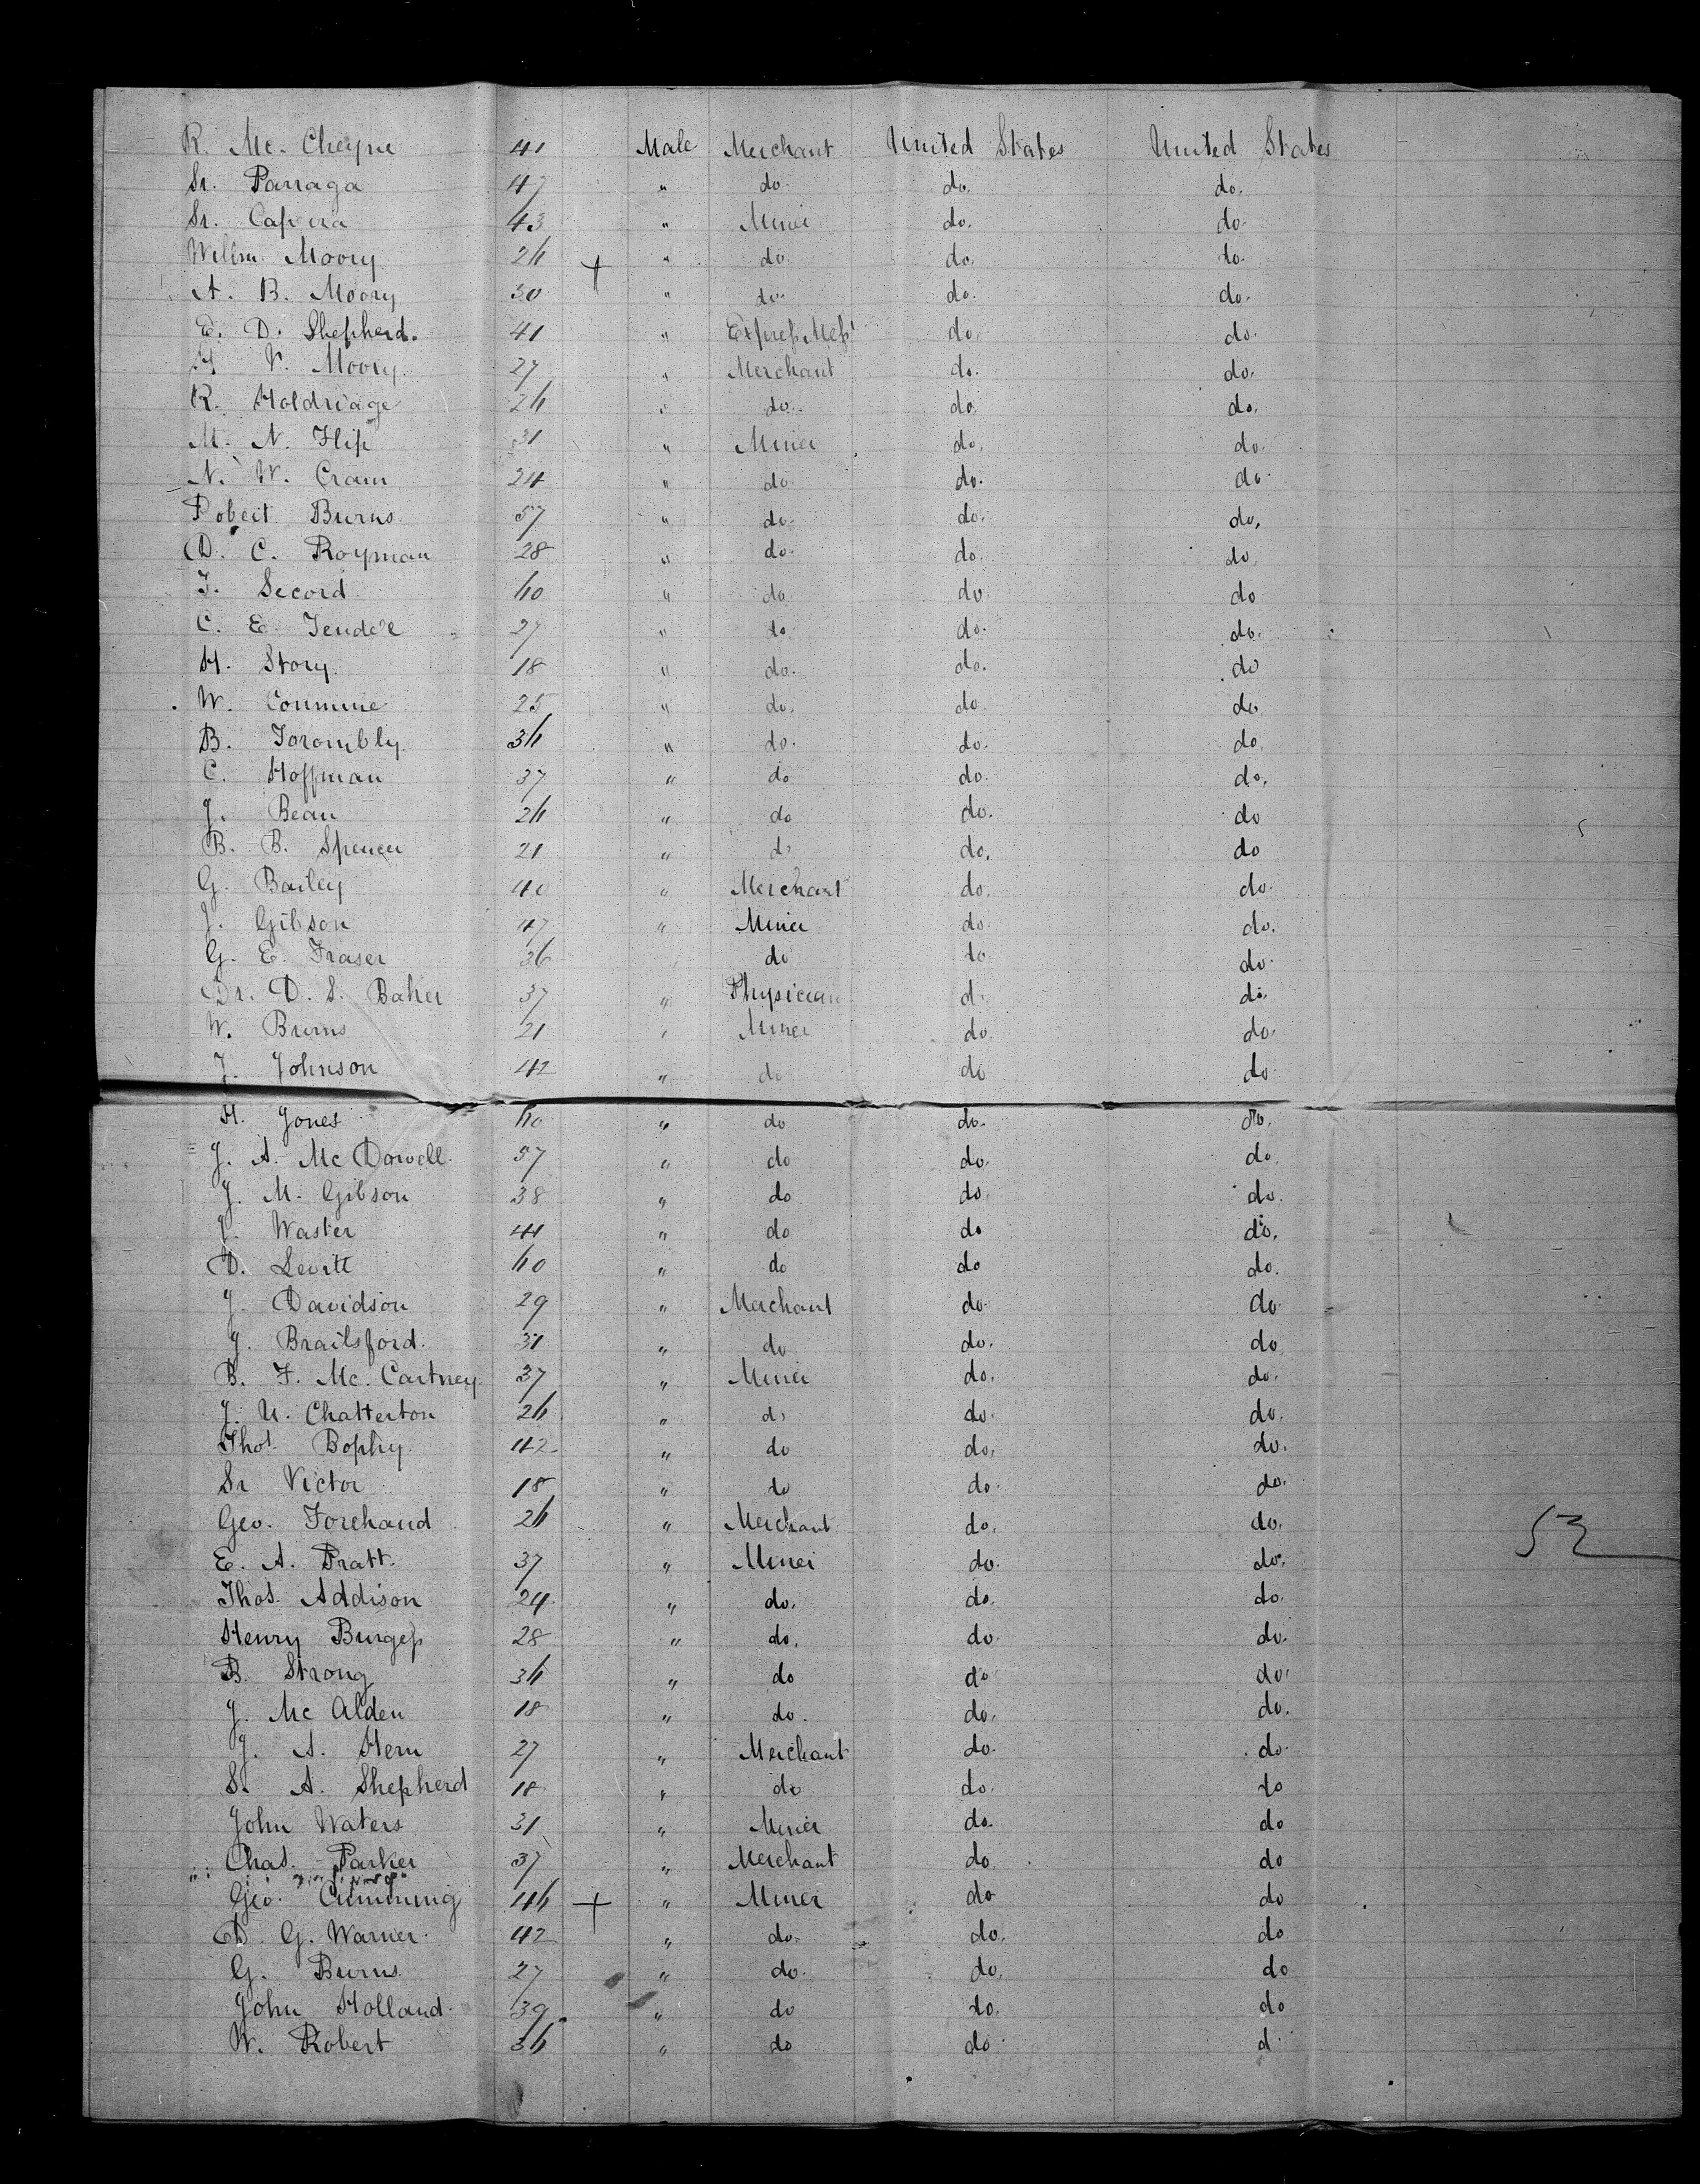 R. Mc. Cheyne 41 Male Merchant United States United States
Sr. Parraga 47 " do. do. do.
Sr. 43 " Miner do. do.
Willm. Moory 26 + " do do. do.
A. B. Moory 30 " do. do. do.
E. D. Shepherd. 41 " Express Messr do. do.
H V. Moory. 27 " Merchant do. do.
R. Holdridge 26 " do. do. do.
M. N. 31 " Miner do. do.
N. W. Cram 24 " do do. do.
Robert Burns. 57 " do. do. do.
D. C. Royman 28 " do. do. do
J. Secord 40 " do do. do
C. E. 27 " do do. do.
H. Story. 18 " do. do. do
W. 25 " do. do do
B. Torombly. 36 " do. do. do.
C. Hoffman 37 " do do. do.
J. Bean 26 " do do. do
B. B. Spencer 21 " do do. do
G. Bailey 40 " Merchant do. do.
J. Gibson 47 " Miner do. do.
G. E. Fraser 36 do do do.
Dr. D. S. Baker 37 " Physician do. do.
W. Burns 21 " Miner do. do.
J. Johnson 42 " do do do
H. Jones 40 " do do. do.
J. A. Mc Dowell. 57 " do do. do.
J. M. Gibson 38 " do do. do.
J. Waster 44 " do do do.
D. Levitt 40 " do do do.
J. Davidson 29 " Merchant do. do.
J. Brailsford. 31 " do do. do
B. F. Mc. Cartney 37 " Miner do. do.
J. U. Chatterton 26 " do do. do.
Thos. Bophy. 42 " do do. do.
Sr Victor 18 " do do. do.
Geo. Forehand 26 " Merchant do. do.
53
E. A. Pratt. 37 " Miner do. do.
Thos. Addison 24 " do. do. do.
Henry Burgess 28 " do. do. do.
B. Strong 36 " do do do.
J. Mc Alden 18 " do. do. do.
J. A. Stern 27 " Merchant do. do.
S. A. Shepherd 18 " do do. do
John Waters 31 " Miner do. do
Chas. Parker 37 " Merchant do do
Geo. Cumming 46 + " Miner do do
D. G. Warner. 42 " do. do. do
G. Burns 27 " do. do. do
John Holland. 39 " do do. do
W. Robert 36 " do do d